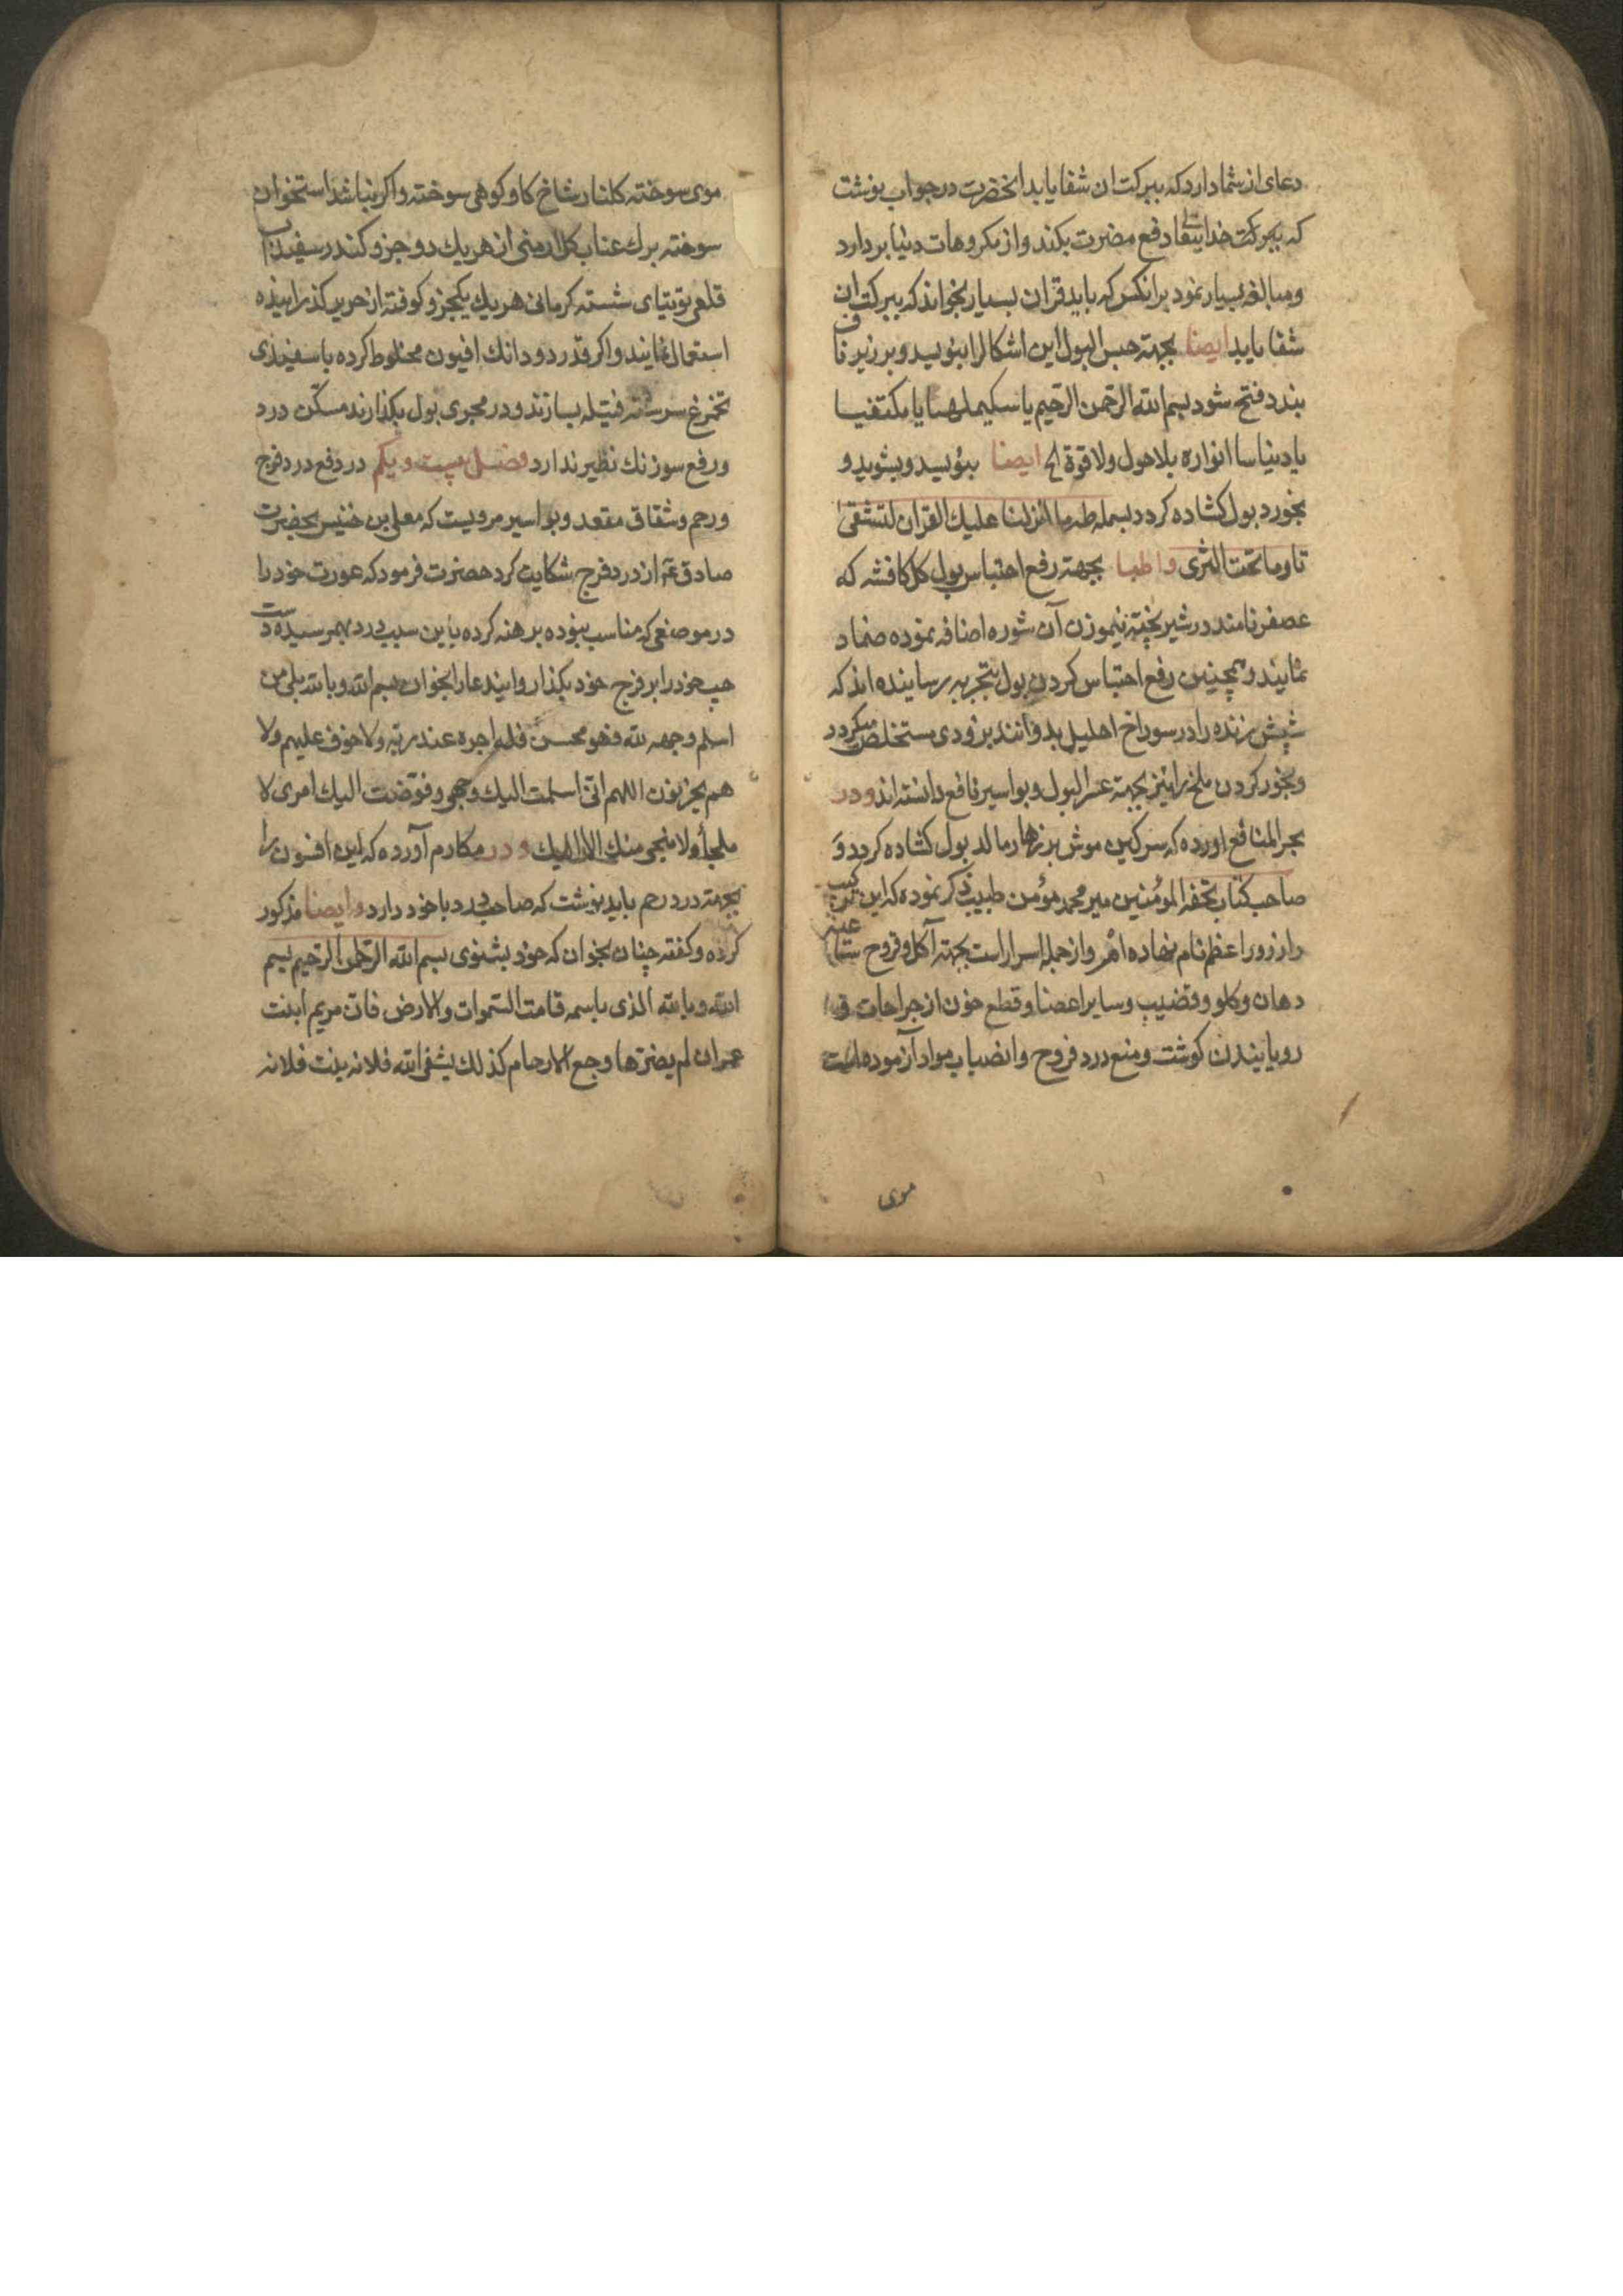 دعای از شما دارد که ببرکت ان شفا یابد انحضرت در جواب نوشت
که ببرکت خدایتعالی دفع مضرت بکند و از مکروهات دنیا بر دارد
و مبالغه بسیار نمود بر انکس که باید قران بسیار بخواند که ببرکت ان
شفا یابد ایضا بجهته حبس البول این اشکال را بنویسد و بر زیر ناف
بندد فتح شود بسم الله الرحمن الرحیم یا
ولا قوة الخ ایضا بنویسد و بشوید و
بخورد بول کشاده کردد بسمله طه ما انزلنا علیك القران لتشقی
تا وما تحت الثری واطبا بجهته رفع احتباس بول کل کافشه که
عصفر نامند در شیر پخته نیموزن آن شوره اضافه نموده ضماد
نمایند و همچنین رفع احتباس کردن بول بتجربه رسانیده اند که
شپش زنده را در سوراخ احلیل بدوانند بزودی مستخلص میکردد
و بخور کردن ملخ را نیز بجهته عسر البول و بواسیر نافع دانسته اند و در
بحر المنافع اورده که سرکین موش بر زهار مالد بول کشاده کردد و
صاحب کتاب تحفه المؤمنین میر محمد مؤمن طبیب ذکر نموده که این ترکیب
را زرور اعظم نام نهاده ام و از جمله اسرار است بجهته آکله و قروح
دهان و کلو و قضیب و سایر اعضا و قطع خون از جراحات و
رویانیدن کوشت و منع درد قروح و انصباب مواد آزموده است
موی
موی سوخته کلنار شاخ کاو کوهی سوخته و اکر نباشد استخوان
سوخته برك عناب کل ارمنی از هر یك دو جزو کندر سفیداب
قلعی توتیای شسته کرمانی هر یك یکجزو کوفته از حریر کذرانیده
استعمال نمایند و اکر قدر دو دانك افیون مخلوط کرده با سفیدی
تخم مرغ سرشته فتیله بسازند و در مجری بول بکذارند مسکن درد
و رفع سوزنك نظیر ندارد فصل بیست و یکم در دفع درد فرج
و رحم و شقاق مقعد و بواسیر مرویست که معلی بن خنیس بحضرت
صادق ع از درد فرج شکایت کرد حضرت فرمود که عورت خود را
در موضعی که مناسب نبوده برهنه کرده باین سبب درد بهم رسیده دست
چپ خود را بر فرج خود بکذار و ایندعا را بخوان بسم الله و بالله بلی من
اسلم وجهه لله فهو محسن فله اجره عند ربه ولا خوف علیهم ولا
هم یحزنون اللهم انی اسلمت الیك وجهی و فوضت الیك امری لا
ملجأ ولا منجی منك الا الیك و در مکارم آورده که این افسون را
بجهته درد رحم باید نوشت که صاحب درد با خود دارد و ایضا مذکور
کرده و کفته چنان بخوان که خود بشنوی بسم الله الرحمن الرحیم بسم
الله و بالله الذی باسمه قامت السموات والارض فان مریم ابنت
عمران لم یضرها وجع الارحام کذلك یشفی الله فلانه بنت فلانه